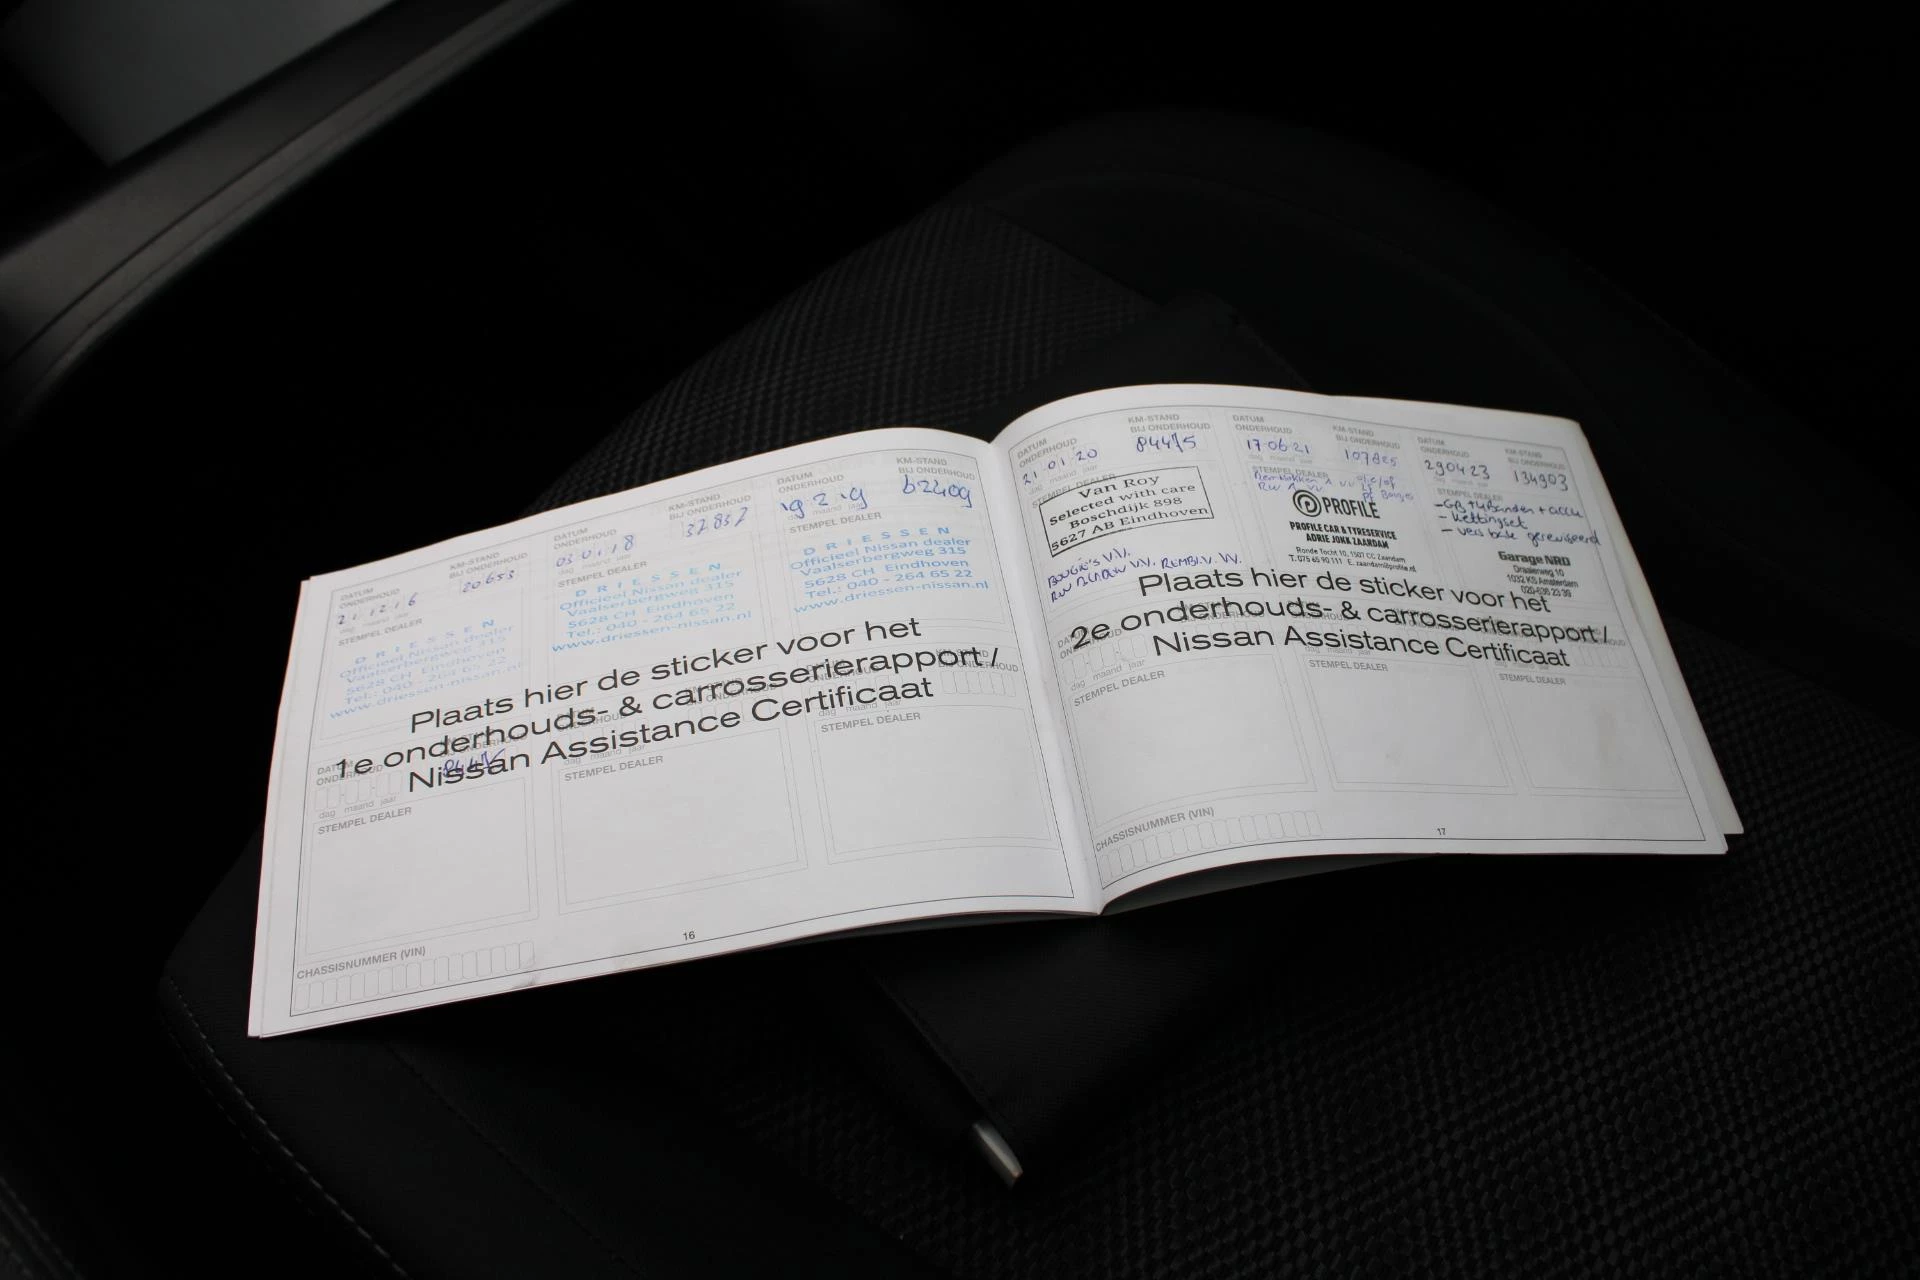 DATUM ONDERHOUD
KM-STAND BIJ ONDERHOUD
21 12 16
20653
dag maand jaar
STEMPEL DEALER
DRIESSEN
Officieel Nissan dealer
Vaalserbergweg 315
5628 CH Eindhoven
Tel.: 040 - 264 65 22
www.driessen-nissan.nl
DATUM ONDERHOUD
KM-STAND BIJ ONDERHOUD
03 01 18
37837
dag maand jaar
STEMPEL DEALER
DRIESSEN
Officieel Nissan dealer
Vaalserbergweg 315
5628 CH Eindhoven
Tel.: 040 - 264 65 22
www.driessen-nissan.nl
DATUM ONDERHOUD
KM-STAND BIJ ONDERHOUD
19 2 19
62409
dag maand jaar
STEMPEL DEALER
DRIESSEN
Officieel Nissan dealer
Vaalserbergweg 315
5628 CH Eindhoven
Tel.: 040 - 264 65 22
www.driessen-nissan.nl
Plaats hier de sticker voor het
1e onderhouds- & carrosserierapport /
Nissan Assistance Certificaat
DATUM ONDERHOUD
dag maand jaar
STEMPEL DEALER
dag maand jaar
STEMPEL DEALER
dag maand jaar
STEMPEL DEALER
CHASSISNUMMER (VIN)
16
DATUM ONDERHOUD
KM-STAND BIJ ONDERHOUD
21 01 20
84475
dag maand jaar
STEMPEL DEALER
Van Roy
Selected with care
Boschdijk 898
5627 AB Eindhoven
BOUGIE'S VV.
DATUM ONDERHOUD
KM-STAND BIJ ONDERHOUD
17 06 21
107825
dag maand jaar
STEMPEL DEALER
PROFILE
PROFILE CAR & TYRESERVICE
ADRIE JONK ZAANDAM
Ronde Tocht 10, 1507 CC Zaandam
T. 075 65 90 111 E. zaandam@profile.nl
DATUM ONDERHOUD
KM-STAND BIJ ONDERHOUD
290423
134903
dag maand jaar
STEMPEL DEALER
- GB + 4 Banden + accu
- kettingset
- versbak gereviseerd
Garage NRD
Draaierweg 10
1032 KS Amsterdam
020-636 23 39
Plaats hier de sticker voor het
2e onderhouds- & carrosserierapport /
Nissan Assistance Certificaat
dag maand jaar
STEMPEL DEALER
STEMPEL DEALER
STEMPEL DEALER
CHASSISNUMMER (VIN)
17